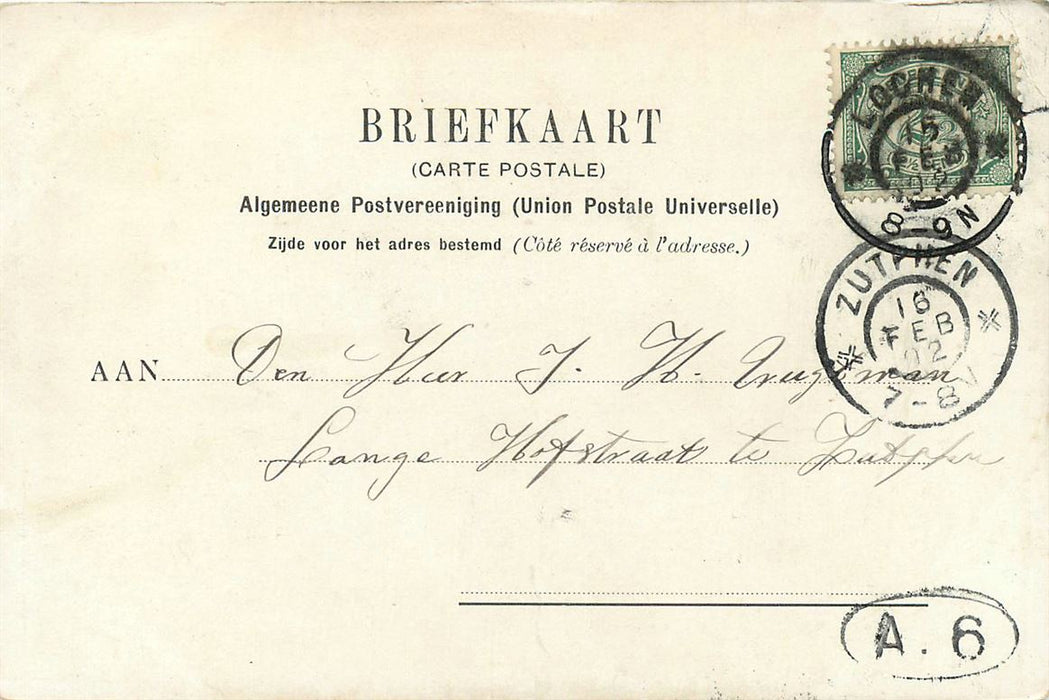 BRIEFKAART
(CARTE POSTALE)
Algemeene Postvereeniging (Union Postale Universelle)
Zijde voor het adres bestemd (Côté réservé à l'adresse.)
LOCHEM
15
FEB
02
8-9N
ZUTPHEN
16
FEB
02
7-8V
AAN Den Heer J. H.
Lange Hofstraat te Zutphen
A. 6